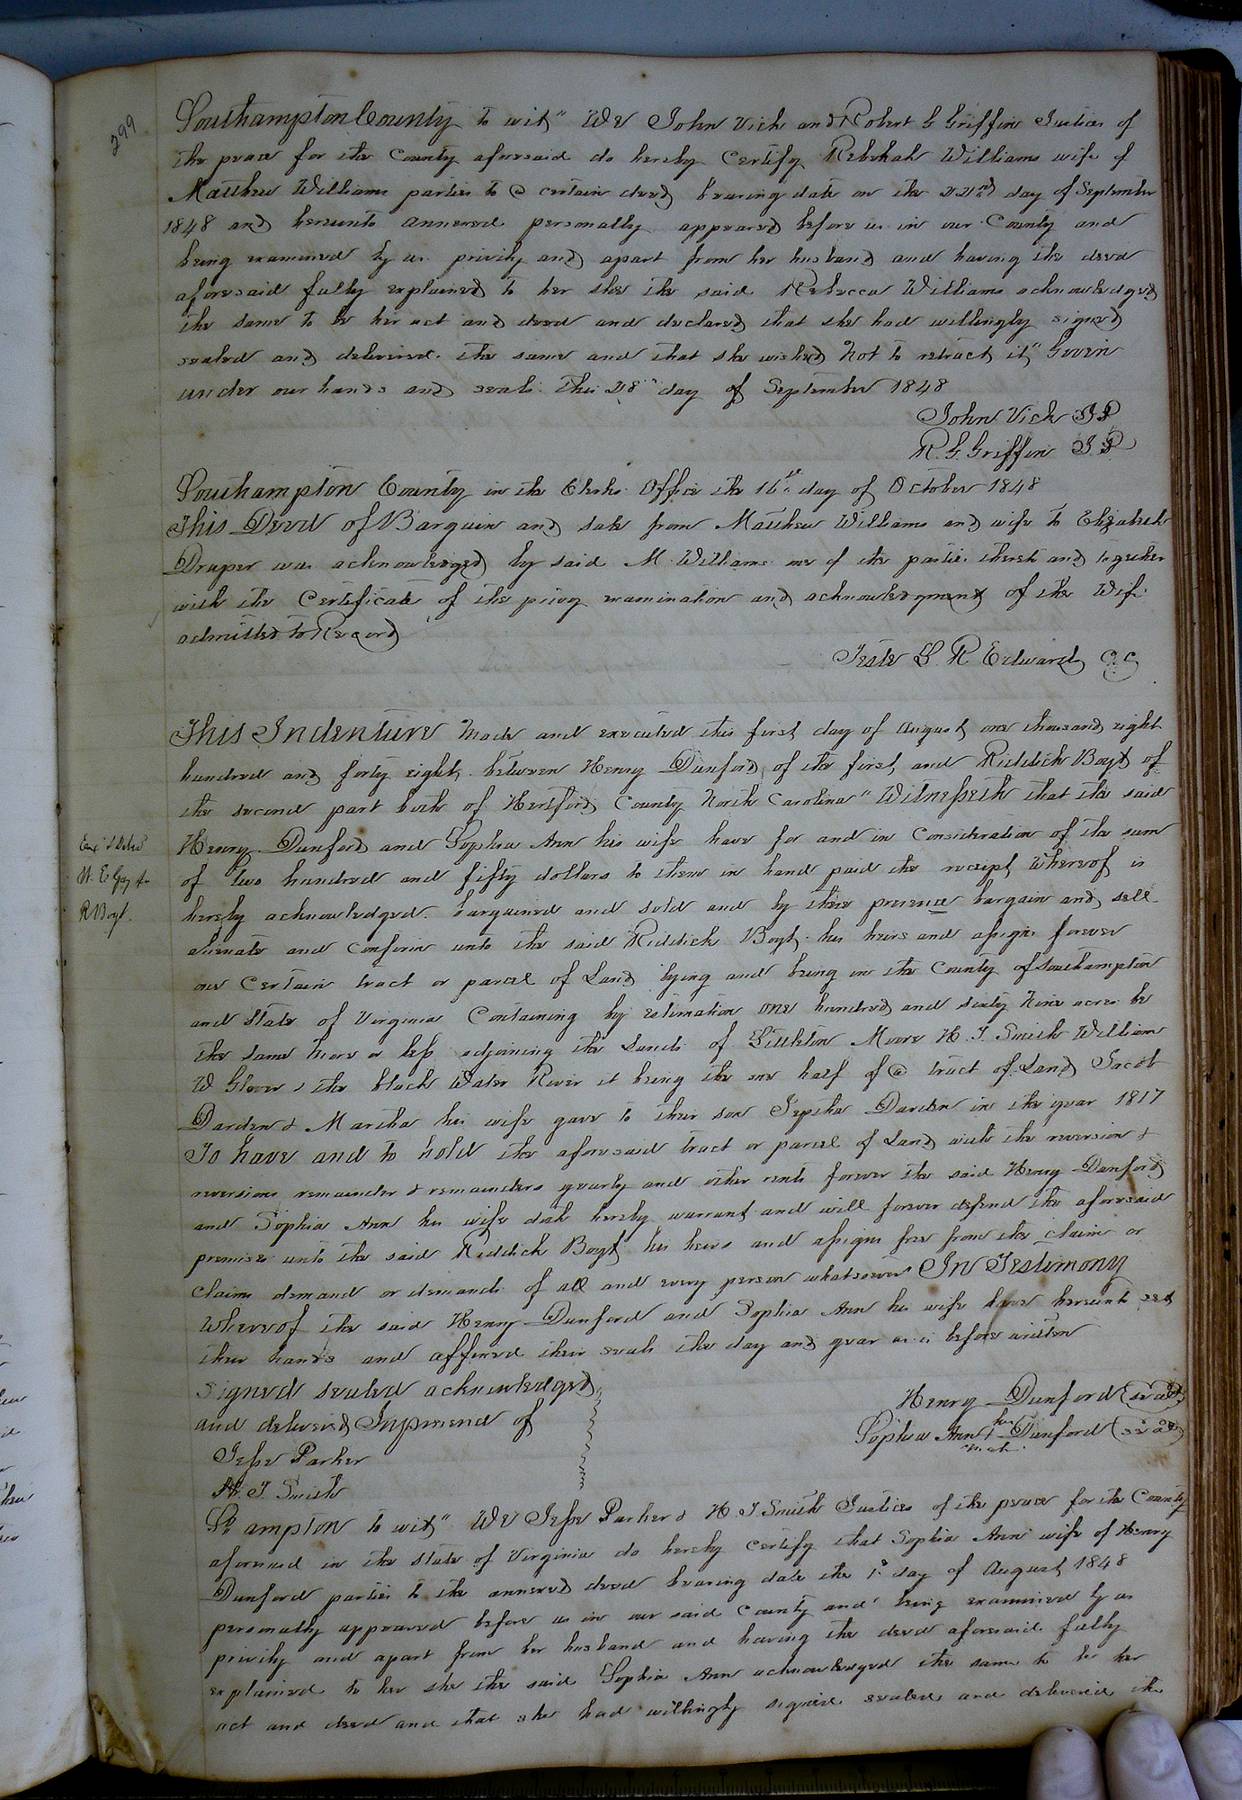 299
Southampton County to wit" We John Vick and Robert G Griffin Justices of
the peace for the County aforesaid do hereby Certify Rebekah Williams wife of
Matthew Williams parties to a certain deed bearing date on the 22nd day of September
1848 and hereunto annexed personally appeared before us in our County and
being examined by us privily and apart from her husband and having the deed
aforesaid fully explained to her she the said Rebecca Williams acknowledged
the same to be her act and deed and declared that she had willingly signed
sealed and delivered the same and that she wished Not to retract it" Given
under our hands and seals this 28th day of September 1848
John Vick JP
R. G. Griffin JP
Southampton County in the Clerks Office the 16th day of October 1848
This Deed of Bargain and sale from Matthew Williams and wife to Elizabeth
Draper was acknowledged by said M Williams one of the parties thereto and together
with the Certificate of the privy examination and acknowledgment of the Wife
admitted to Record
Teste L R Edwards CC
This Indenture Made and executed this first day of August one thousand eight
hundred and forty eight between Henry Dunford of the first and Riddick Boyt of
the second part both of Hertford County North Carolina" Witnesseth that the said
Henry Dunford and Sophia Ann his wife have for and in Consideration of the sum
of two hundred and fifty dollars to them in hand paid the receipt whereof is
hereby acknowledged bargained and sold and by these presence bargain and sell
alienate and Conferm unto the said Riddick Boyt his heirs and assigns forever
one Certain tract or parcel of Land lying and being in the County of Southampton
and State of Virginia Containing by estimation one hundred and sixty Nine acres be
the same more or less adjoining the Lands of Littleton Moore H. T. Smith William
W Glover & the black Water River it being the one half of a tract of Land Jacob
Darden & Martha his wife gave to their son Jeptha Darden in the year 1817
To have and to hold the aforesaid tract or parcel of Land with the reversion &
reversions remainder & remainders yearly and other rents forever the said Henry Dunford
and Sophia Ann his wife doth hereby warrant and will forever defend the aforesaid
premises unto the said Riddick Boyt his heirs and assigns free from the claim or
claims demand or demands of all and every person whatsoever In Testimony
Whereof the said Henry Dunford and Sophia Ann his wife have hereunto set
their hands and affixed their seals the day and year before written
Signed sealed acknowledged
and delivered In presence of
Jesse Parker
H. T. Smith
Henry Dunford (seal)
Sophia Ann + her Dunford (seal)
mark
Examd & Deld
W. E. Gay for
R Boyt.
So ampton to wit" We Jesse Parker & H T Smith Justices of the peace for the County
aforesaid in the State of Virginia do hereby certify that Sophia Ann wife of Henry
Dunford parties to the annexed deed bearing date the 1st day of August 1848
personally appeared before us in our said County and being examined by us
privily and apart from her husband and having the deed aforesaid fully
explained to her she the said Sophia Ann acknowledged the same to be her
act and deed and that she had willingly signed sealed and delivered the